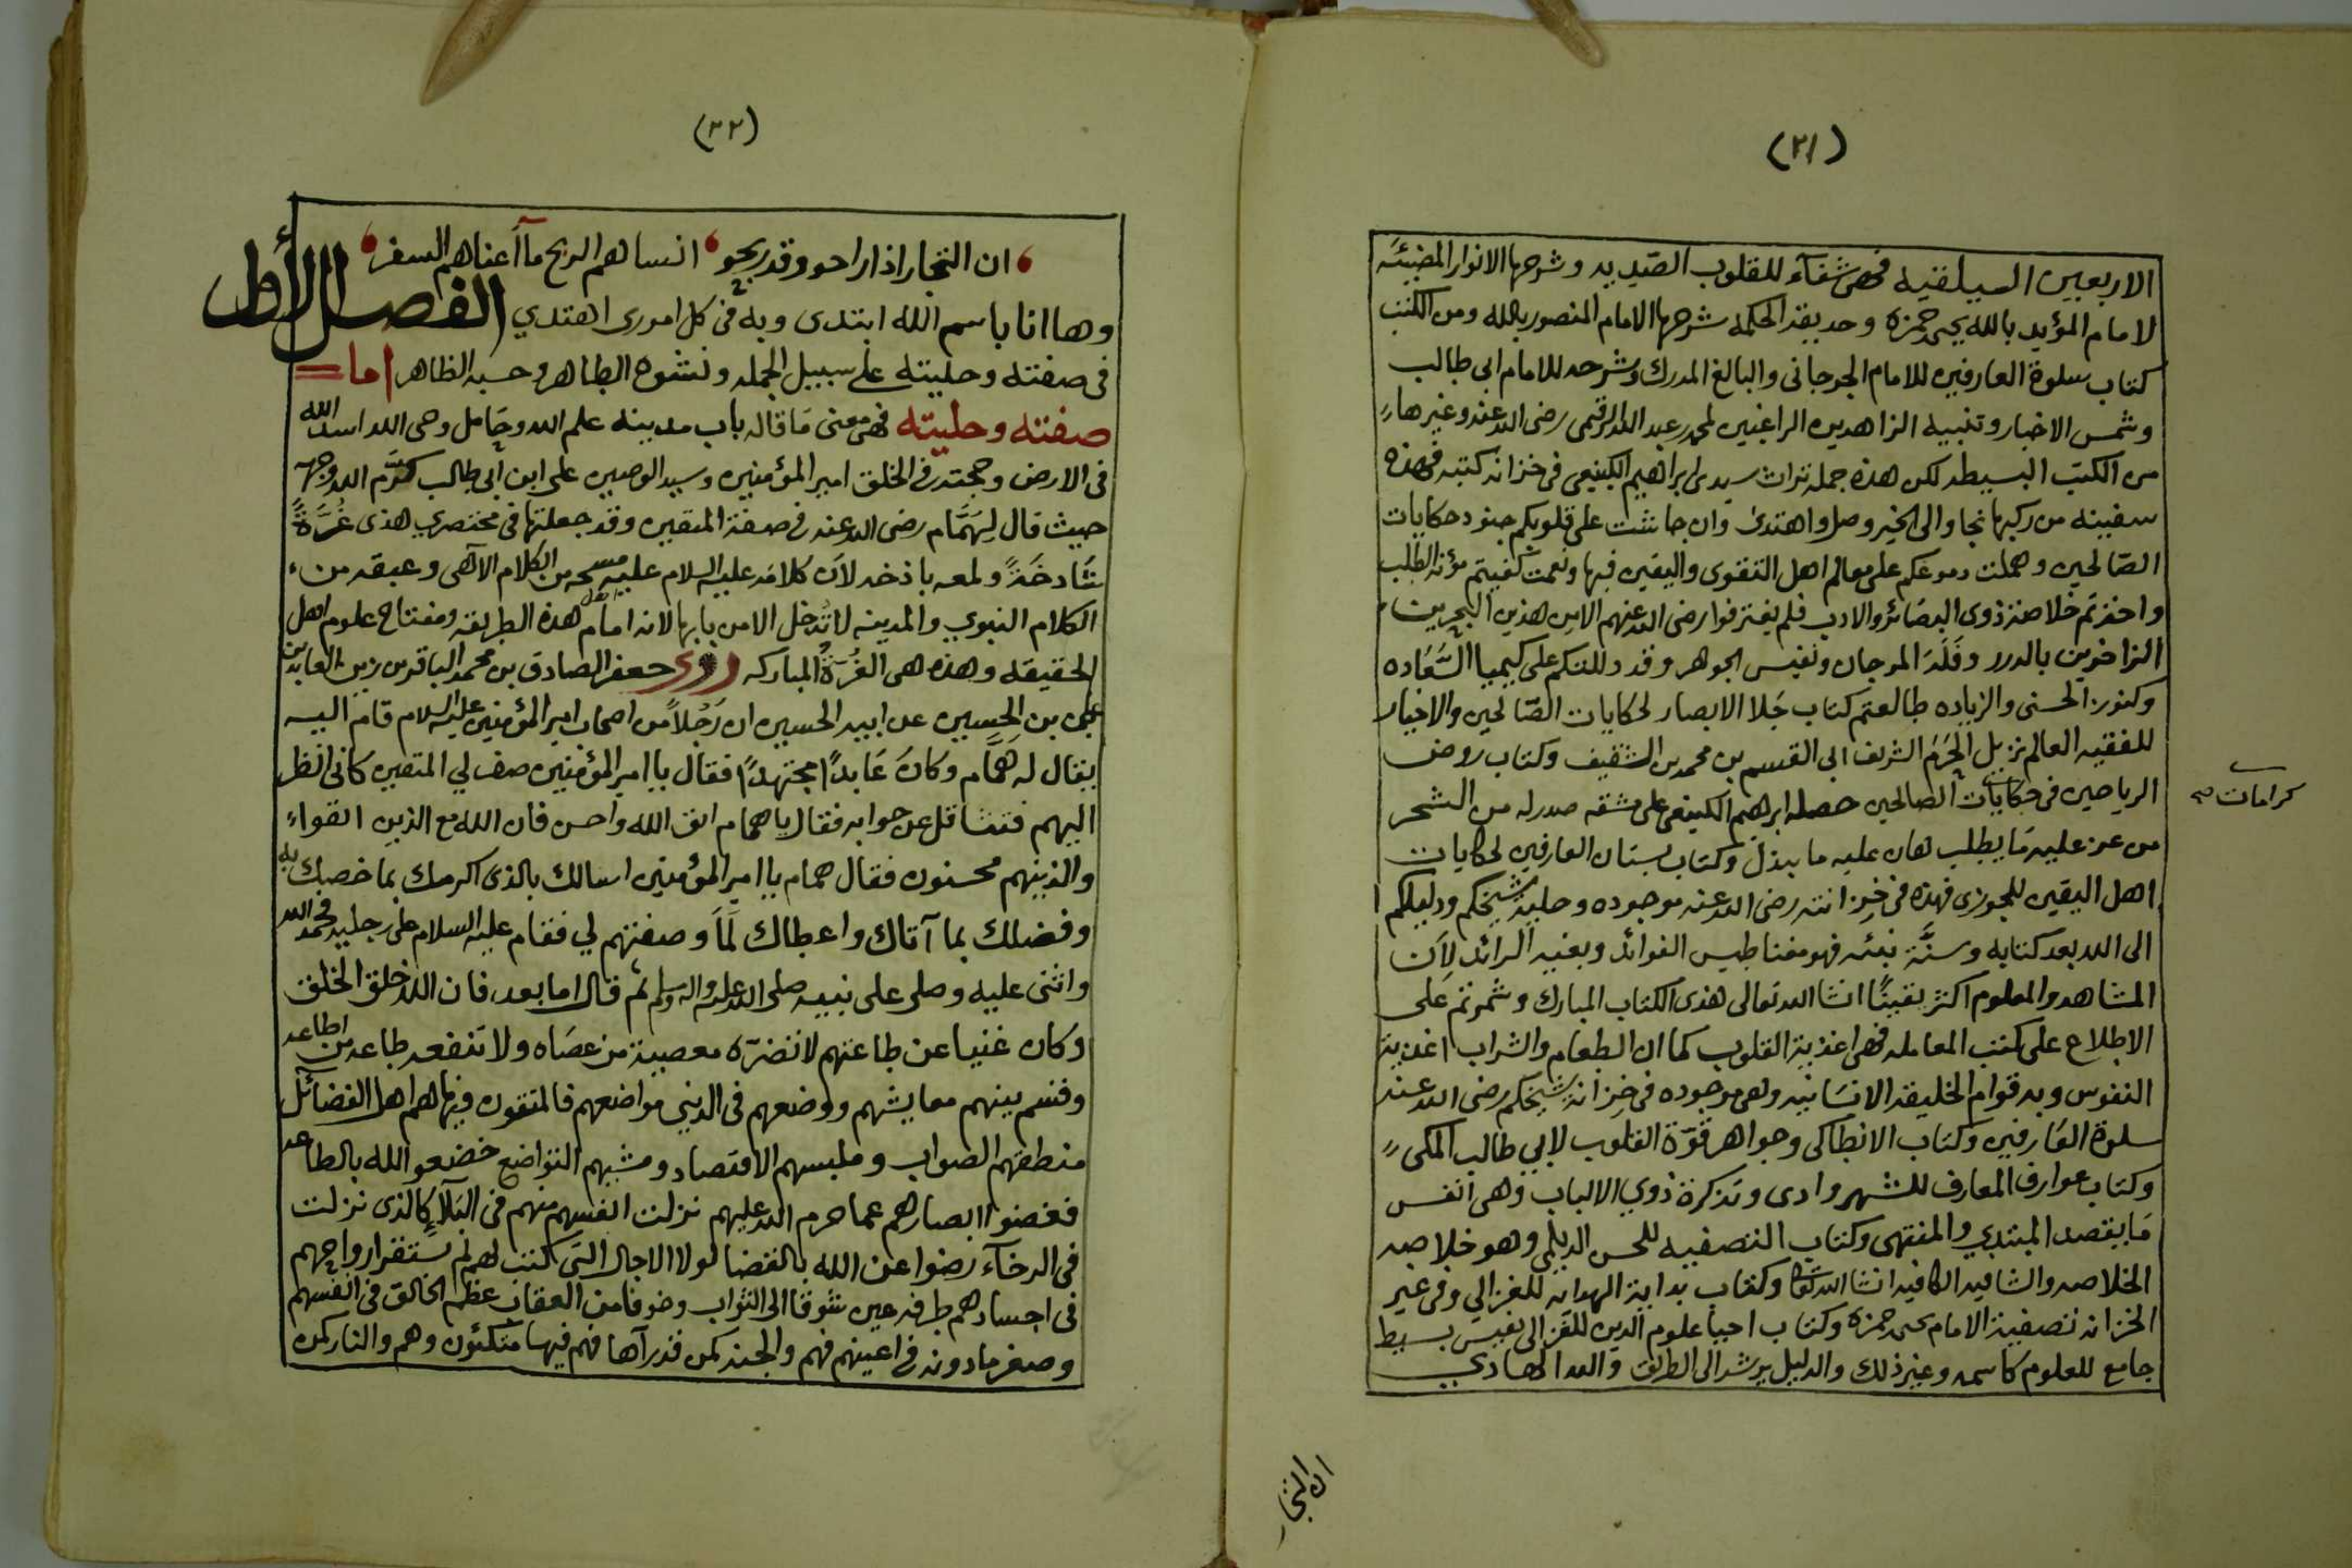 (٢١)
الاربعين السيلقيه فهى شفآء للقلوب الصّديه وشرحها الانوار المضيئه
لامام المؤيد بالله يحيى حمزه وحديقة الحكمه شرحها الامام المنصور بالله ومن الكتب
كتاب سلوة العارفين للامام الجرجانى والبالغ المدرك وشرحه للامام ابى طالب
وشمس الاخبار وتنبيه الزاهدين الراغبين لمحمد بن عبد الله الرقيمى رضى الله عنه وغيرها
من الكتب البسيطه لكن هذه جملة تراث سيدى ابراهيم الكينعى فى خزانة كتبه فهذه
سفينه من ركبها نجا والى الخير وصل واهتدى وان جاشت على قلوبكم جنود حكايات
الصّالحين وهملت دموعكم على معالم اهل التقوى واليقين فبها ونعمت كفيتم مؤنة الطلب
واحزتم خلاصة ذوى البصائر والادب فلم يغترفوا رضى الله عنهم الا من هذين البحرين
الزاخرين بالدرر وقَلَدَ المرجان ونفيس الجوهر وقد دللتكم على كيميا السَّعَاده
وكنوز الحسنى والزياده طالعتم كتاب جَلا الابصار لحكايات الصّالحين والاخيار
للفقيه العالم نزيل الحَرَم الشريف ابى القسم بن محمد بن الشقيف وكتاب روض
الرياحين فى حكايات الصالحين حصله ابرهيم الكينعى على مشقه صدر له من الشحر
كرامات صح
من عز عليه مَا يطلب هان عليه ما يبذل وكتاب بستان العارفين لحكايات
اهل اليقين للجوزى فهذه فى خزانته رضى الله عنه موجوده وحلية شيخكم ودليلكم
الى الله بعد كتابه وسنَّة نبيّه فهو مغناطيس الفوائد وبغية الرائد لِأن
المشاهد والمعلوم اكثر يقينًا انشا الله تعالى هذى الكتاب المبارك وشمرتم عَلى
الاطلاع على كتب المعامله فهى اغذية القلوب كما ان الطعام والشراب اغذية
النفوس وبه قوام الخليقه الانسَانيه وهى موجوده فى خزانة شيخكم رضى الله عنه
سلوة العَارفين وكتاب الانطاكى وجواهر قوّة القلوب لابي طالب المكى
وكتاب عوارف المعارف للشهروادى وتذكرة ذوي الالباب وهى انفس
مَا يقصد المبتدي والمنتهى وكتاب التصفيه للحسن الديلمي وهو خلاصة
الخلاصه والشافيه الكافيه انشا الله تعَالى وكتاب بداية الهدايه للغزالي وفى غير
الخزانه تصفية الامام يحيى حمزه وكتاب احيا علوم الدين للغزالى نفيس بسيط
جامع للعلوم كاسمه وغير ذلك والدليل يرشد الى الطريق والله الهادي
ان التجار
(٢٢)
ان التجار اذا راحو وقد ربحو انساهم الربح ما أعناهم السفر
وها انا باسم الله ابتدى وبه فى كل امورى اهتدي الفصل الأول
فى صفته وحليته على سبيل الجمله ونشوه الطاهر وحسبه الظاهر اما
صفته وحليته فهى معنى مَا قاله باب مدينة علم الله وحَامل وحى الله اسد الله
فى الارض وحجته فى الخلق امير المؤمنين وسيد الوصيين على ابن ابى طالب كرَّم الله وجهه
حيث قال لِهَمَّام رضى الله عنه فى صفة المتقين وقد جعلتها فى مختصري هذى غُرَّةً
شَادخَةً ولمعه باذخه لأن كلامَه عليه السلام عليه مسحه من الكلام الآلهى وعبقه من
الكلام النبوي والمدينه لا تُدخل الا من بابها لانه امام اهل هذه الطريقه ومفتاح علوم اهل
الحقيقه وهذه هى الغُرَّةُ المباركه روى جعفر الصادق بن محمد الباقر بن زين العابدين
على بن الحسين عن ابيه الحسين ان رَجُلاً من اصحاب امير المؤمنين عليه السلام قام اليه
يقال له همَّام وكان عَابدًا مجتهدًا فقال يا امير المؤمنين صف لي المتقين كَانى انظر
اليهم فتثاقل عن جوابه فقال يا همام اتق الله واحسن فان الله مع الذين اتقواء
والذينهم محسنون فقال همام يا امير المؤمنين اسالك بالذى اكرمك بما خصك به
وفضلك بما آتاك واعطاك لَمَّا وصفتهم لي فقام عليه السلام على رجليه فحمد الله
واثنى عليه وصلى على نبيه صلى الله عليه واله وسلم ثم قال اما بعد فان الله خلق الخلق
وكان غنيا عن طاعتهم لا تضرّه معصية من عصَاه ولا تنفعه طاعة من اطاعه
وقسم بينهم معايشهم ووضعهم فى الدنيى مواضعهم فالمتقون فيها هم اهل الفضآئل
منطقهم الصواب وملبسهم الاقتصاد ومشيهم التواضع خضعو الله بالطاعه
فغضوا ابصارهم عما حرم الله عليهم نزلت انفسهم منهم فى البَلآءِ كالذى نزلت
فى الرخآء رضوا عن الله بالقضا لولا الاجال التى كتبت لهم لم تستقر ارواحهم
فى اجسادهم طرفة عين شوقا الى الثواب وخوفا من العقاب عظم الخالق فى انفسهم
وصغر مادونه فى اعينهم فهم والجنه كمن قد رآها فهم فيها متكئون وهم والنار كمن